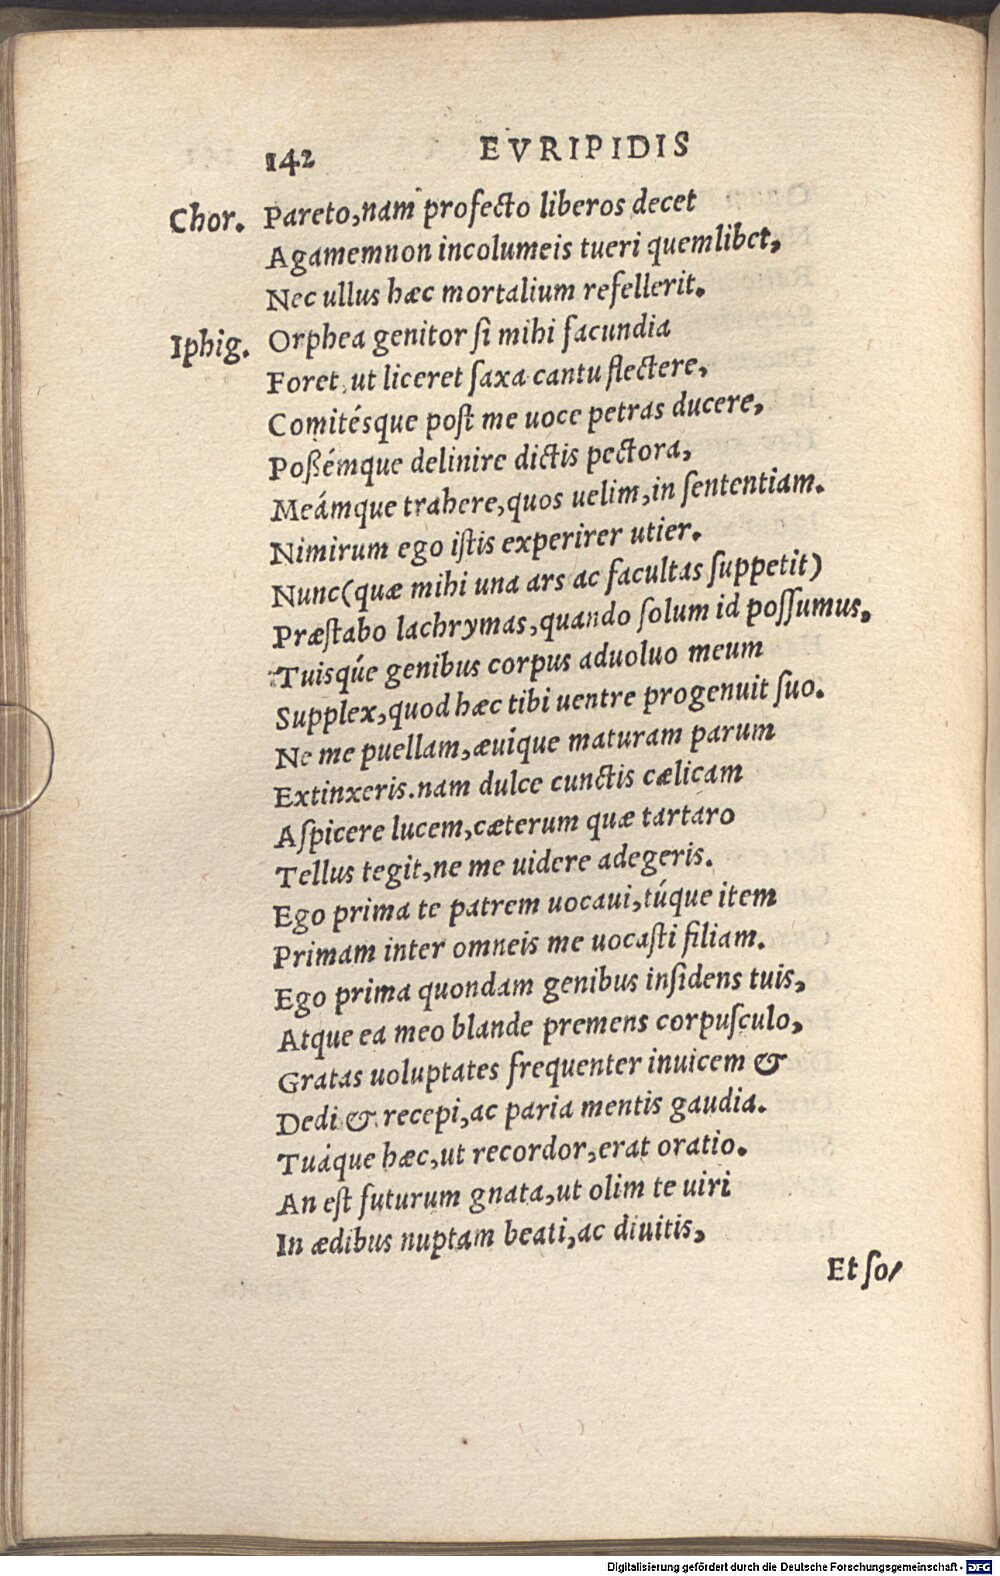 142 EVRIPIDIS
Chor. Pareto, nam profecto liberos decet
Agamemnon incolumeis tueri quemlibet,
Nec ullus hæc mortalium refellerit.
Iphig. Orphea genitor ſi mihi facundia
Foret, ut liceret ſaxa cantu flectere,
Comitésque poſt me uoce petras ducere,
Poßémque delinire dictis pectora,
Meámque trahere, quos uelim, in ſententiam.
Nimirum ego iſtis experirer utier.
Nunc (quæ mihi una ars ac facultas ſuppetit)
Præſtabo lachrymas, quando ſolum id poſſumus,
Tuisqúe genibus corpus aduoluo meum
Supplex, quod hæc tibi uentre progenuit ſuo.
Ne me puellam, æuique maturam parum
Extinxeris. nam dulce cunctis cælicam
Aſpicere lucem, cæterum quæ tartaro
Tellus tegit, ne me uidere adegeris.
Ego prima te patrem uocaui, túque item
Primam inter omneis me uocaſti filiam.
Ego prima quondam genibus inſidens tuis,
Atque ea meo blande premens corpuſculo,
Gratas uoluptates frequenter inuicem &
Dedi & recepi, ac paria mentis gaudia.
Tuáque hæc, ut recordor, erat oratio.
An eſt futurum gnata, ut olim te uiri
In ædibus nuptam beati, ac diuitis,
Et ſo/
Digitalisierung gefördert durch die Deutsche Forschungsgemeinschaft - DFG